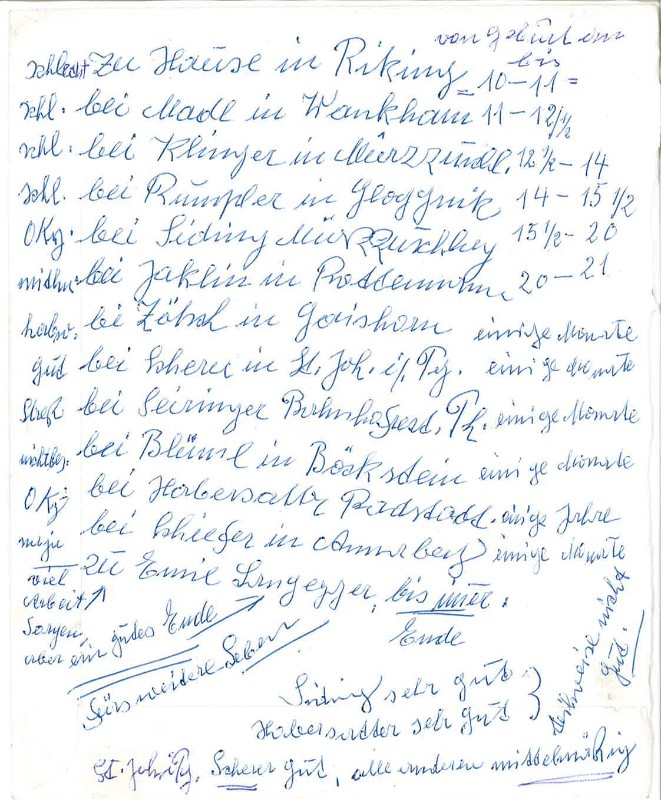 von Geburt an
schlecht Zu Hause in Riking bis = 10-11 =
schl. bei Madl in Wankham 11-12 1/2
schl. bei Klinger in Mürzzuschl. 12 1/2 - 14
schl. bei Rumpler in Gloggnik 14 - 15 1/2
OK bei Siding Mürzzuschlag 15 1/2 - 20
bei Jaklin in 20-21
bei in Gaishorn einige Monate
gut bei Scherer in St. Joh. i/ Pg. einige Monate
Streß bei Seiringer Bahnhofrest. einige Monate
bei Blüml in Böckstein einige Monate
OK bei Habersatter Radstadt. einige Jahre
bei Schiefer in Annaberg einige Monate
zu Emil Langegger, bis
viel
Arbeit
Sorgen,
aber ein gutes Ende
Ende
fürs weitere Leben
teilweise nicht
gut.
Siding sehr gut
Habersatter sehr gut
St. Joh. Pg. Scherer gut, alle anderen mittelmäßig